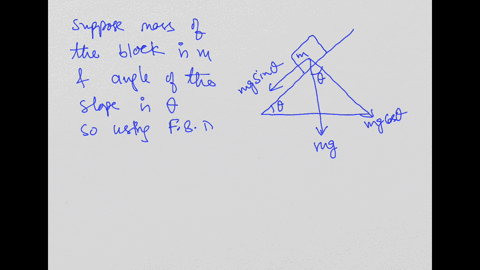 Suppose mass of
the block is m
& angle of the
slope is θ
so using F.B.D
m
mg sinθ
θ
θ
mg cosθ
mg